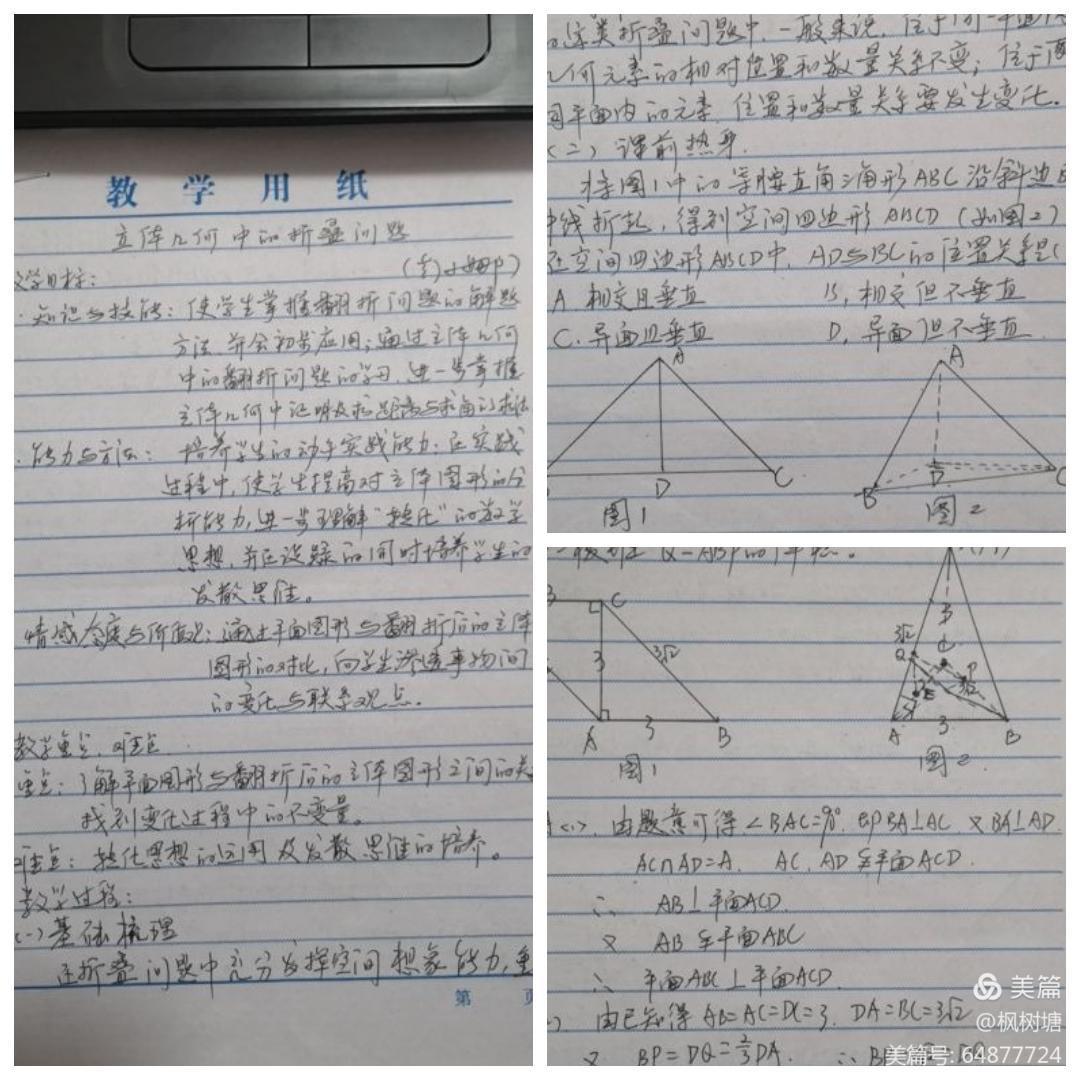 教 学 用 纸
立体几何中的折叠问题
学目标:
知识与技能: 使学生掌握翻折问题的解题
方法,并会初步应用;通过立体几何
中的翻折问题的学习,进一步掌握
立体几何中证明及求距离与求角的求法
能力与方法: 培养学生的动手实践能力;在实践
过程中,使学生提高对立体图形的分
析能力,进一步理解“转化”的数学
思想,并在设疑的同时培养学生的
发散思维。
情感态度与价值观: 通过平面图形与翻折后的立体
图形的对比,向学生渗透事物间
的变化与联系观点。
教学重点、难点
重点: 了解平面图形与翻折后的立体图形之间的关
找到变化过程中的不变量。
难点: 转化思想的运用及发散思维的培养。
教学过程:
(一)基础梳理
在折叠问题中充分发挥空间想象能力,重
第 页
这类折叠问题中,一般来说,位于同一平面
几何元素的相对位置和数量关系不变;位于两
同平面内的元素,位置和数量关系要发生变化。
(二)课前热身
将图1中的等腰直角三角形ABC沿斜边B
中线折起,得到空间四边形ABCD(如图2)
在空间四边形ABCD中,AD与BC的位置关系是(
A. 相交且垂直 B. 相交但不垂直
C. 异面且垂直 D. 异面但不垂直
A
D C
图1
A
B D C
图2
Q-ABP的体积。
3 C
3 3√2
A 3 B
图1
3√2
Q
P
E
A 3 B
图2
(1). 由题意可得∠BAC=90°, 即BA⊥AC, 又BA⊥AD.
AC∩AD=A. AC, AD在平面ACD.
∴ AB⊥平面ACD.
又 AB在平面ABC
∴ 平面ABC⊥平面ACD.
由已知得 AB=AC=DC=3. DA=BC=3√2
又 BP=DQ=2/3DA. ∴
美篇
@枫树塘
美篇号: 64877724